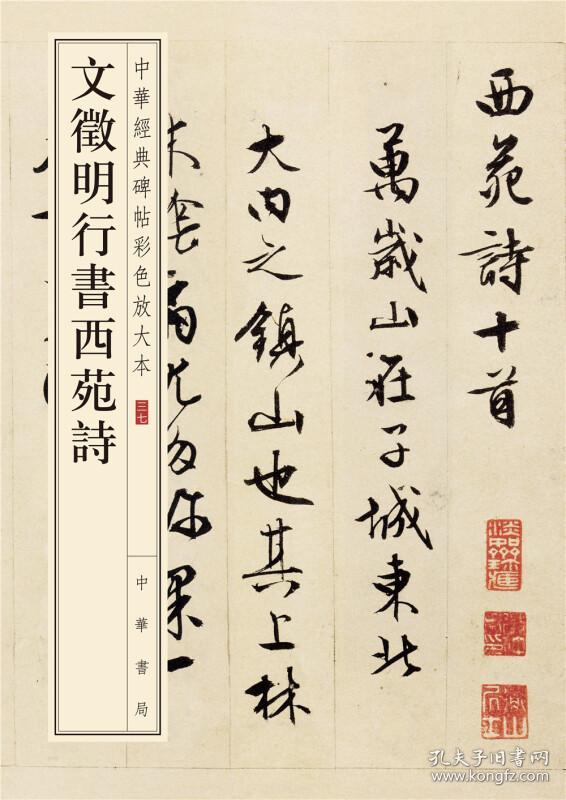 西苑詩十首
萬歲山在子城東北
大內之鎮山也其上林
尤多珍果一
中華經典碑帖彩色放大本
三七
中華書局
文徵明行書西苑詩
孔夫子旧书网
www.kongfz.com